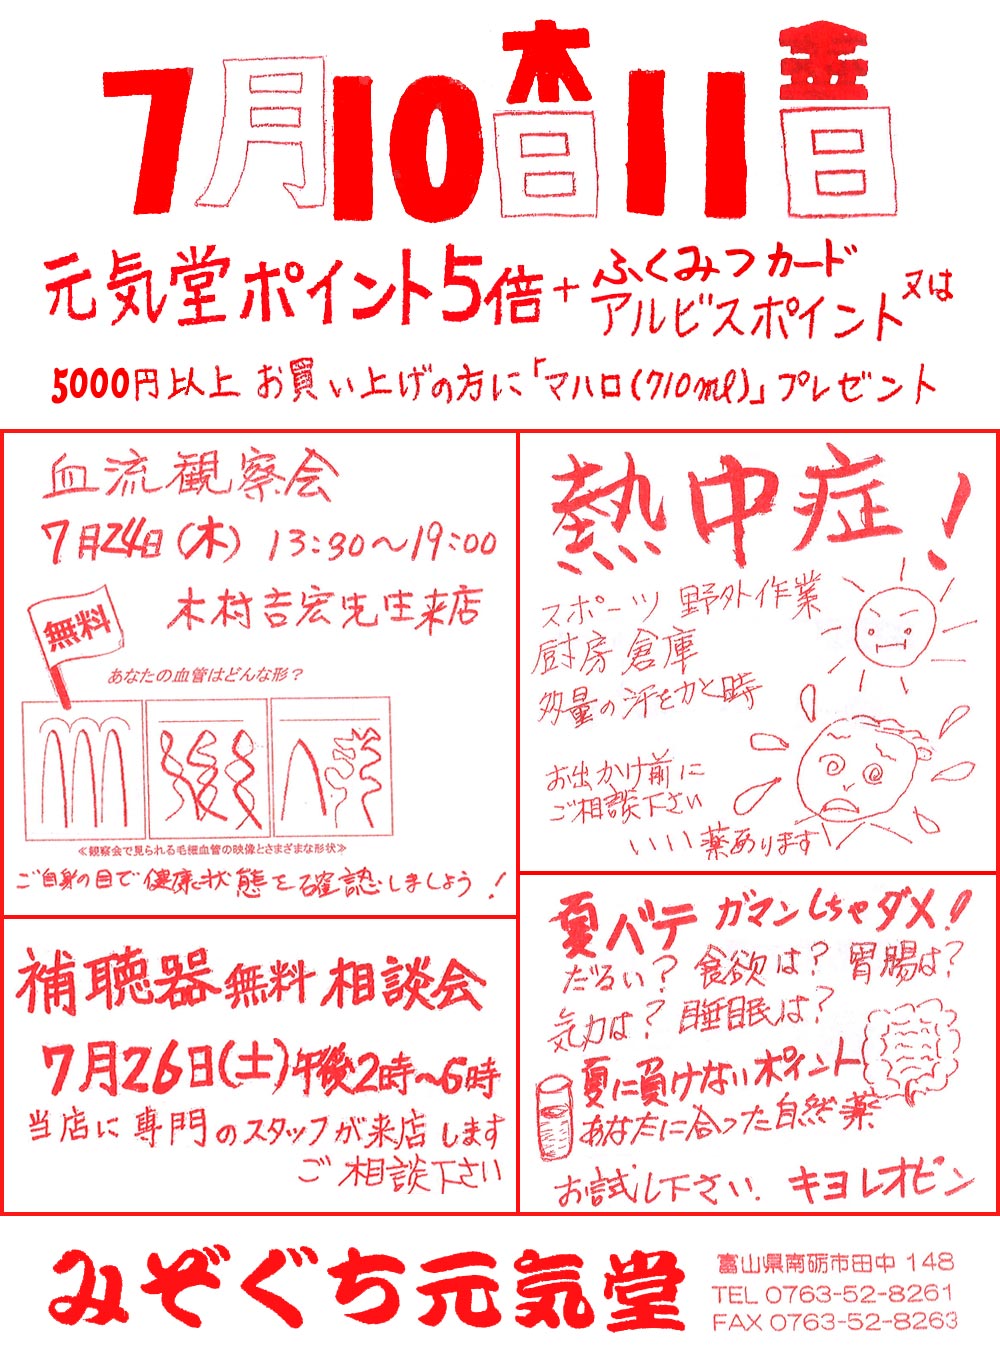 7月10木日11金日
元気堂ポイント5倍+ふくみつカード
アルビスポイント又は
5000円以上お買い上げの方に「マハロ(710ml)」プレゼント
血流観察会
7月24日(木) 13:30〜19:00
無料
木村吉宏先生来店
あなたの血管はどんな形？
≪観察会で見られる毛細血管の映像とさまざまな形状≫
ご自身の目で健康状態を確認しましょう!
補聴器無料相談会
7月26日(土)午後2時〜6時
当店に専門のスタッフが来店します
ご相談下さい
熱中症!
スポーツ 野外作業
厨房 倉庫
多量の汗をかく時
お出かけ前に
ご相談下さい
いい薬あります
夏バテ ガマンしちゃダメ!
だるい? 食欲は? 胃腸は?
気力は? 睡眠は?
夏に負けないポイント
あなたに合った自然薬
お試し下さい. キヨーレオピン
みぞぐち元気堂
富山県南砺市田中 148
TEL 0763-52-8261
FAX 0763-52-8263